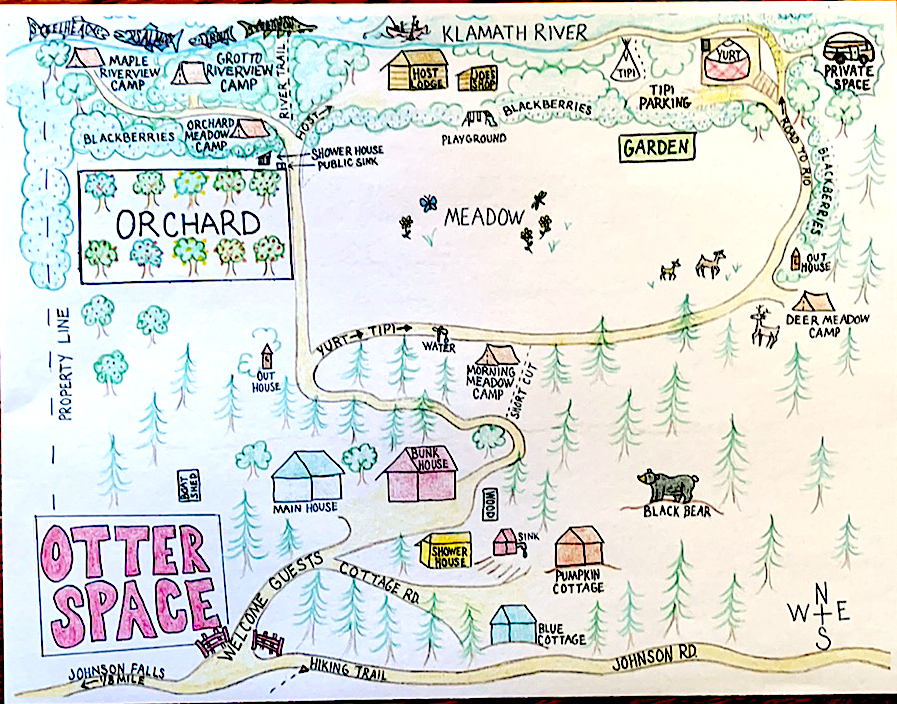 STEELHEAD
SALMON
KLAMATH RIVER
MAPLE
RIVERVIEW
CAMP
GROTTO
RIVERVIEW
CAMP
RIVER TRAIL
HOST
LODGE
TIPI
TIPI
PARKING
YURT
PRIVATE
SPACE
BLACKBERRIES
ORCHARD
MEADOW
CAMP
HOST
PLAYGROUND
BLACKBERRIES
GARDEN
ROAD TO RIO
BLACKBERRIES
SHOWER HOUSE
PUBLIC SINK
ORCHARD
MEADOW
OUT
HOUSE
DEER MEADOW
CAMP
PROPERTY LINE
YURT TIPI
WATER
OUT
HOUSE
MORNING
MEADOW
CAMP
SHORT CUT
BOAT
SHED
MAIN HOUSE
BUNK
HOUSE
WOOD
BLACK BEAR
OTTER
SPACE
WELCOME GUESTS
COTTAGE RD.
SHOWER
HOUSE
SINK
PUMPKIN
COTTAGE
BLUE
COTTAGE
N
W E
S
JOHNSON FALLS
1/8 MILE
HIKING TRAIL
JOHNSON RD.